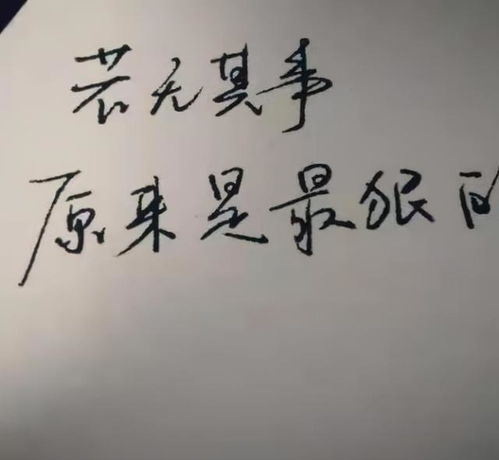 若无其事
原来是最狠